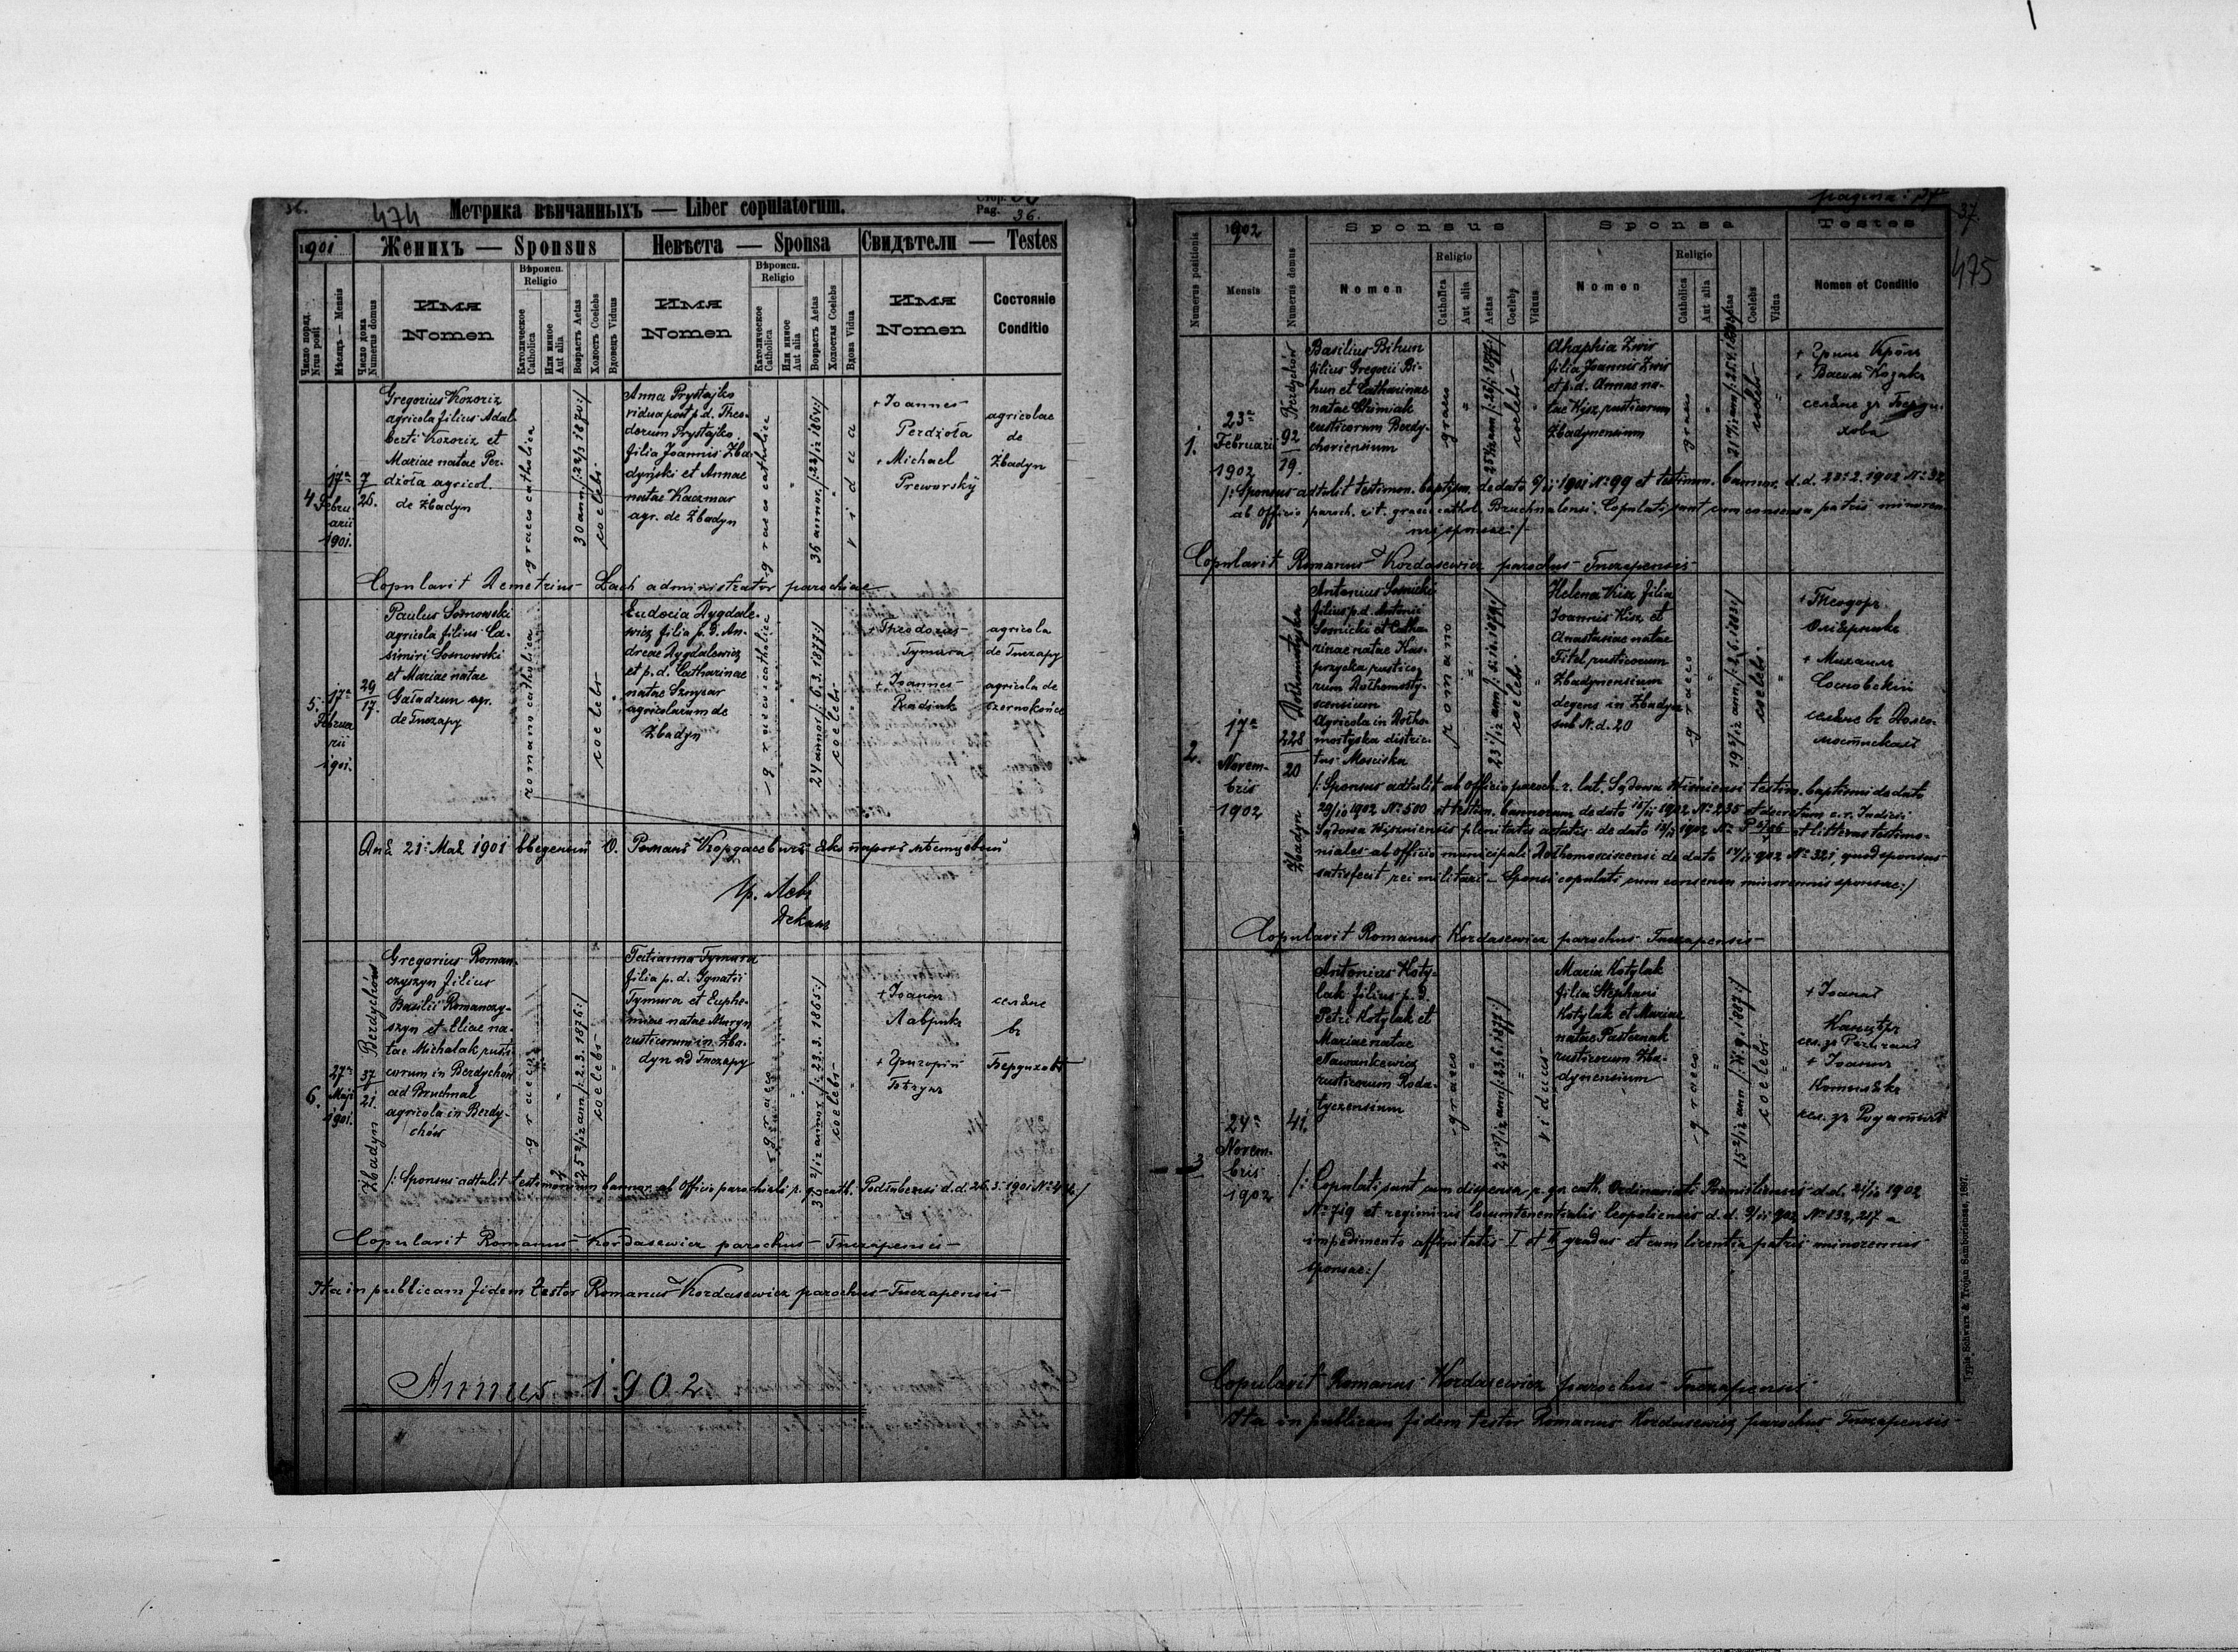 36.
474
Метрика вѣнчанныхъ — Liber copulatorum.
Стор.
Pag. 36.
1901
Женихъ — Sponsus
Невѣста — Sponsa
Свидѣтели — Testes
Число поряд.
Nrus posit
Мѣсяць — Mensis
Число дома
Numerus domus
Имя
Nomen
Вѣроисп.
Religio
Католическое
Catholica
Или иное
Aut alia
Возрастъ Aetas
Холостъ Coelebs
Вдовецъ Viduus
Имя
Nomen
Вѣроисп.
Religio
Католическое
Catholica
Или иное
Aut alia
Возрастъ Aetas
Холостая Coelebs
Вдова Vidua
Имя
Nomen
Состояніе
Conditio
4
17a
Febru
arii
1901.
7
26.
Gregorius Kozoriz
agricola filius Adal
berti Kozoriz et
Mariae natae Per-
dzoła agricol.
de Zbadyn
graeco catholica
30 ann /: 22/3 1870:/
coelebs
Anna Prystajko
vidua post p.d. Theo-
dorum Prystajko
filia Joannis Zba-
dyński et Annae
natae Kaczmar
agr. de Zbadyn
graeco catholica
36 annor. /: 22/12 1864:/
vidua
+ Joannes
Perdzoła
+ Michael
Preworskÿ
agricolae
de
Zbadyn
Copulavit Demetrius Lach administrator parochiae
5.
17a
Februa
rii
1901.
29
17.
Paulus Sosnowski
agricola filius Ca-
simiri Sosnowski
et Mariae natae
Gaładzun agr.
de Tuczapy
romano catholica
coelebs
Eudocia Dygdale-
wicz filia p. d. An-
dreae Dygdalewicz
et p.d. Catharinae
natae Sznycar
agricolarum de
Zbadyn
graeco catholica
24 annos /: 6.3. 1877:/
coelebs
+ Theodorus
Tymura
+ Joannes
Radziak
agricola
de Tuczapy
agricola de
Czernokońce
Днѣ 21: Маѣ 1901 введенный О. Романъ Кордасевичъ яко парохъ мѣстцевый
Декан
6.
27a
Maji
1901.
Zbadyn Berdychów
37
21.
Gregorius Roman-
czyszyn filius
Basilii Romanczy-
szyn et Eliae na-
tae Michalak rusti
corum in Berdychow
ad Bruchnal
agricola in Berdy-
chów
graeco
25 2/12 ann /: 2.3. 1876:/
coelebs
Tatianna Tymura
filia p.d. Ignatii
Tymura et Euphe-
miae natae Muryn
rusticorum in Zba-
dyn ad Tuczapy
graeco
36 2/12 annor /: 23.3. 1865:/
coelebs
+ Іоаннъ
Лаврикъ
+ Григорій
селѣне
въ
Бердиховѣ
/: Sponsus adtulit testimonium bannor. ab Officio parochiali r. gr. cath. Podłubensi d.d. 26.5. 1901 No
Copulavit Romanus Kordasewicz parochus Tuczapensis
Ita in publicam fidem testor Romanus Kordasewicz parochus Tuczapensis
Annus 1902
pagina: 37
37.
475
1902
Numerus positionis
Mensis
Numerus domus
Sponsus
Nomen
Religio
Catholica
Aut alia
Aetas
Coelebs
Viduus
Sponsa
Nomen
Religio
Catholica
Aut alia
Aetas
Coelebs
Vidua
Testes
Nomen et Conditio
1.
23a
Februarii
1902
Berdychów
92
19.
Basilius Bihun
filius Gregorii Bi-
hun et Catharinae
natae Chimiak
rusticorum Berdy-
choviensium
graeco
coelebs
Ahaphia Zwir
filia Joannis Zwir
et p.d. Annae na-
tae Kisz rusticorum
Zbadynensium
graeco
coelebs
+ Гринь Кроль
+ Василь Козакъ
селѣне зъ Берды-
хова
/: Sponsus adtulit testimon. baptism. de dato 6/11 1901 No 99 et testimon. bannor. d.d. 22.2.1902 No 32
ab Officio paroch. rit. graeci cathol. Bruchnalensi. Copulati sunt cum consensu patris minoren-
nis sponsae:/
Copulavit Romanus Kordasewicz parochus Tuczapensis
2.
17a
Novem-
bris
1902
Dołhomostyska
228
20
Zbadyn
Antonius Sosnicki
filius p.d. Antonii
Sosnicki et Catha-
rinae natae Kas-
przycka rustico-
rum Dołhomosty-
scensium
Agricola in Dołho-
mostyska distric-
tus Mosciska
romano
coelebs
Helena Kisz filia
Joannis Kisz et
Anastasiae natae
Fitel rusticorum
Zbadynensium
degens in Zbadyn
sub N.d. 20
graeco
coelebs
+ Теодоръ
Олѣарникъ
+ Михаилъ
Сосновскій
селѣне въ Долго-
мостискахъ
/: Sponsus adtulit ab Officio paroch. r. lat. Sądowa Wiśniensi testim. baptismi de dato
29/10 1902 No 500 et testim. bannorum de dato 16/11 1902 No 235 et decretum c.r. Judicii
Sądowa Wiszniensis plenitatis aetatis de dato
et litteras testimo-
niales ab officio municipali Dołhomosciscensi de dato 14/11 902 No 321, quod sponsus
satisfecit rei militari – Sponsi copulati cum consensu minorennis sponsae:/
Copulavit Romanus Kordasewicz parochus Tuczapensis
3
24a
Novem-
bris
1902
41.
Antonius Koty-
lak filius p. d.
Petri Kotylak et
Mariae natae
Nawankewicz
rusticorum Roda-
tyczensium
graeco
25 5/12 ann /: 23.6.1877:/
viduus
Maria Kotylak
filia Stephani
Kotylak et Mariae
natae Pasternak
rusticorum Zba-
dynensium
graeco
coelebs
+ Іоаннъ
+ Іоаннъ
сел. зъ Родатичъ
/: Copulati sunt cum dispensa r. gr. cath. Ordinariati Premisliensis d.d. 21/10 1902
No 719 et regiminis locumtenentialis Leopoliensis d.d. 9/11 902 No 132,217 a
impedimento affinitatis I et II gradus et cum licentia patris minorennis
sponsae:/
Copulavit Romanus Kordasewicz parochus Tuczapensis
Ita in publicam fidem testor Romanus Kordasewicz parochus Tuczapensis
Typis Schwarz & Trojan Samboriensae, 1897.